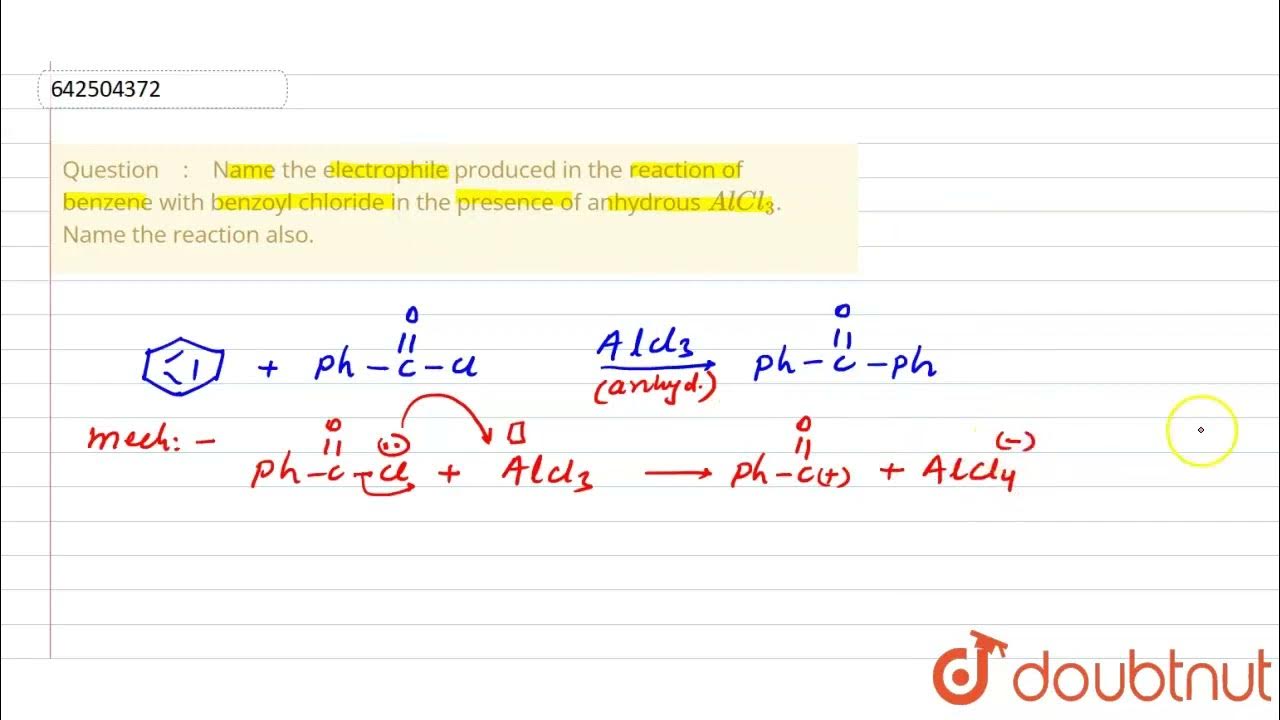 642504372
Question : Name the electrophile produced in the reaction of
benzene with benzoyl chloride in the presence of anhydrous AlCl₃.
Name the reaction also.
O O
|| ||
+ Ph – C – Cl AlCl₃ Ph – C – Ph
(anhyd.)
mech: – O (··) O (–)
|| ||
Ph – C – Cl + AlCl₃ ⟶ Ph – C(+) + AlCl₄
doubtnut